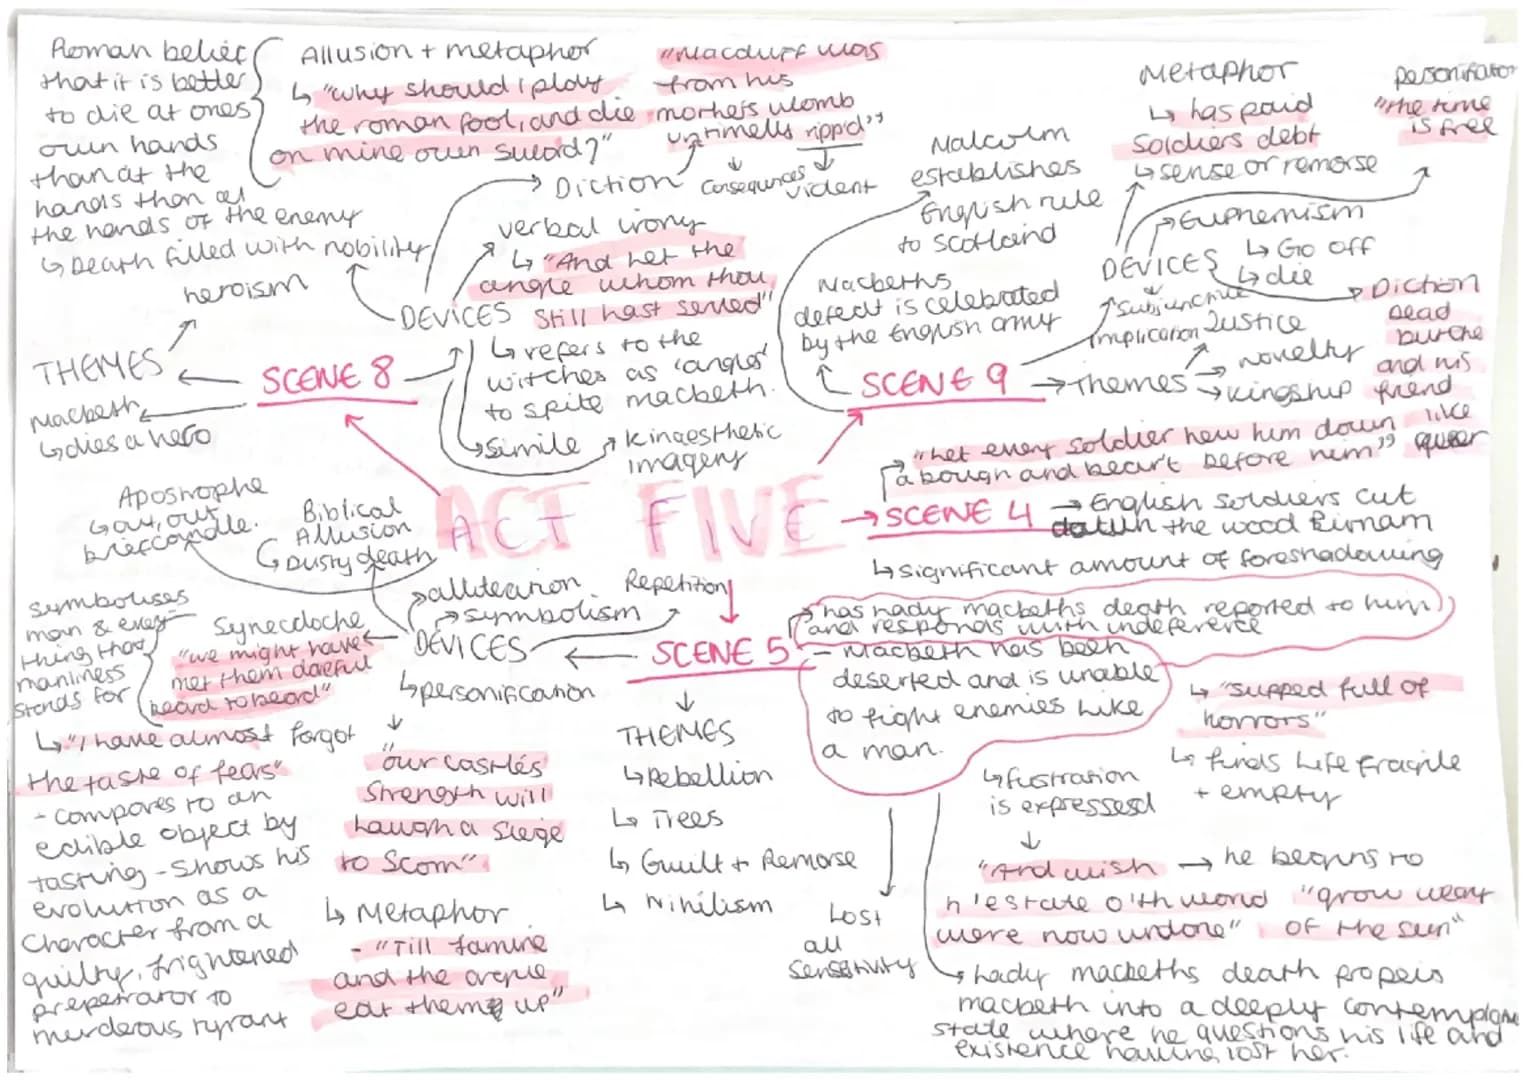 Roman belief
that it is better
to die at ones
own hands
than at the
hands than at
the hands of the enemy
↳ Death filled with nobility
Allusion + metaphor
↳ "why should I play
the roman fool, and die
on mine own sword?"
"Macduff was
from his
mothers womb
untimells ripp'd"
↓ consequences
↓ vident
Diction
verbal irony
↳ "And let the
angle whom thou
still hast served"
↳ refers to the
witches as 'angles'
to spite macbeth.
DEVICES
↳ Simile
Kinaesthetic
imagery
heroism
THEMES
SCENE 8
Macbeth
↳ dies a hero
Malcolm
establishes
English rule
to Scotland
Macbeths
defeat is celebrated
by the English army
Metaphor
↳ has paid
Soldiers debt
↳ sense or remorse
personification
"the time
is free
Euphemism
↳ Go off
↳ die
DEVICES
Subjunctive
implication
Justice
SCENE 9
→ Themes
→ novelty
→ kingship
Diction
Dead
butcher
and his
fiend
like
queer
ACT FIVE
"Let every soldier hew him down
a bough and bear't before him"
→ SCENE 4
→ English Soldiers cut
down the wood Birnam
↳ significant amount of foreshadowing
Apostrophe
↳ out, out
brief candle.
Biblical
Allusion
↳ Dusty death
alliteration
symbolism
Repetition
DEVICES
↳ personification
SCENE 5
has lady macbeths death reported to him
and responds with indeference
- Macbeth has been
deserted and is unable
to fight enemies like
a man.
symbolises
man & every
thing that
manliness
stands for
Synecdoche
"we might have
met them dareful
beard to beard"
↳ "I have almost forgot
the taste of fears"
- compares to an
edible object by
tasting - shows his
evolution as a
character from a
guilty, frightened
prepetrator to
murderous tyrant
"our castles
strength will
laugh a siege
to Scorn"
↳ Metaphor
- "Till famine
and the argue
eat them up"
THEMES
↳ Rebellion
↳ Trees
↳ Guilt + Remorse
↳ Nihilism
Lost
all
sensitivity
↳ "supped full of
horrors"
↳ finds life fragile
+ empty
↳ fustration
is expressesd
"And wish
h'estate o'th world
were now undone"
→ he begins to
"grow weary
of the sun"
↳ lady macbeths death propels
macbeth into a deeply contemplative
state where he questions his life and
existence having lost her.